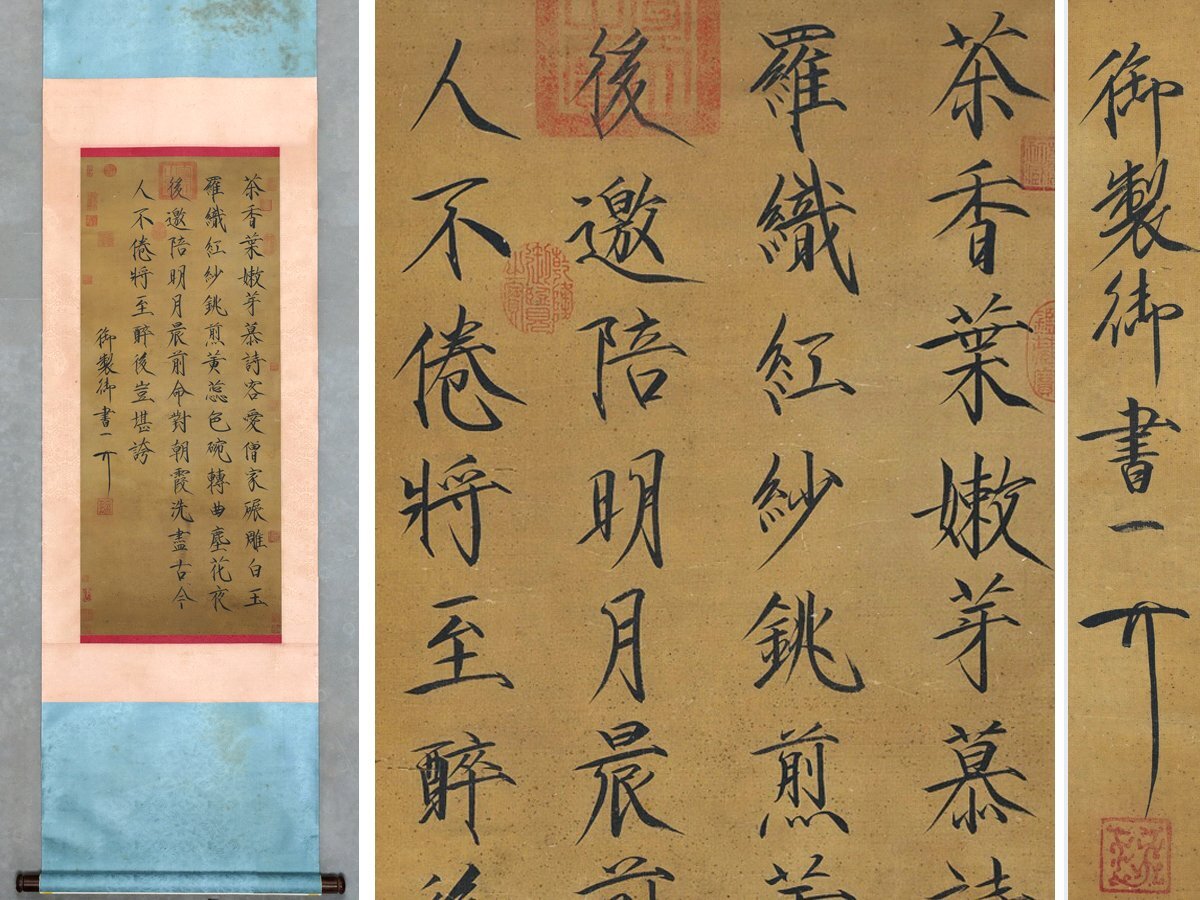 茶香葉嫩芽慕詩客愛僧家碾雕白玉
羅織紅紗銚煎黃蕊色碗轉曲塵花夜
後邀陪明月晨前命對朝霞洗盡古今
人不倦將至醉後豈堪誇
御製御書一
茶香葉嫩芽慕
羅織紅紗銚煎
後邀陪明月晨
人不倦將至醉
御製御書一